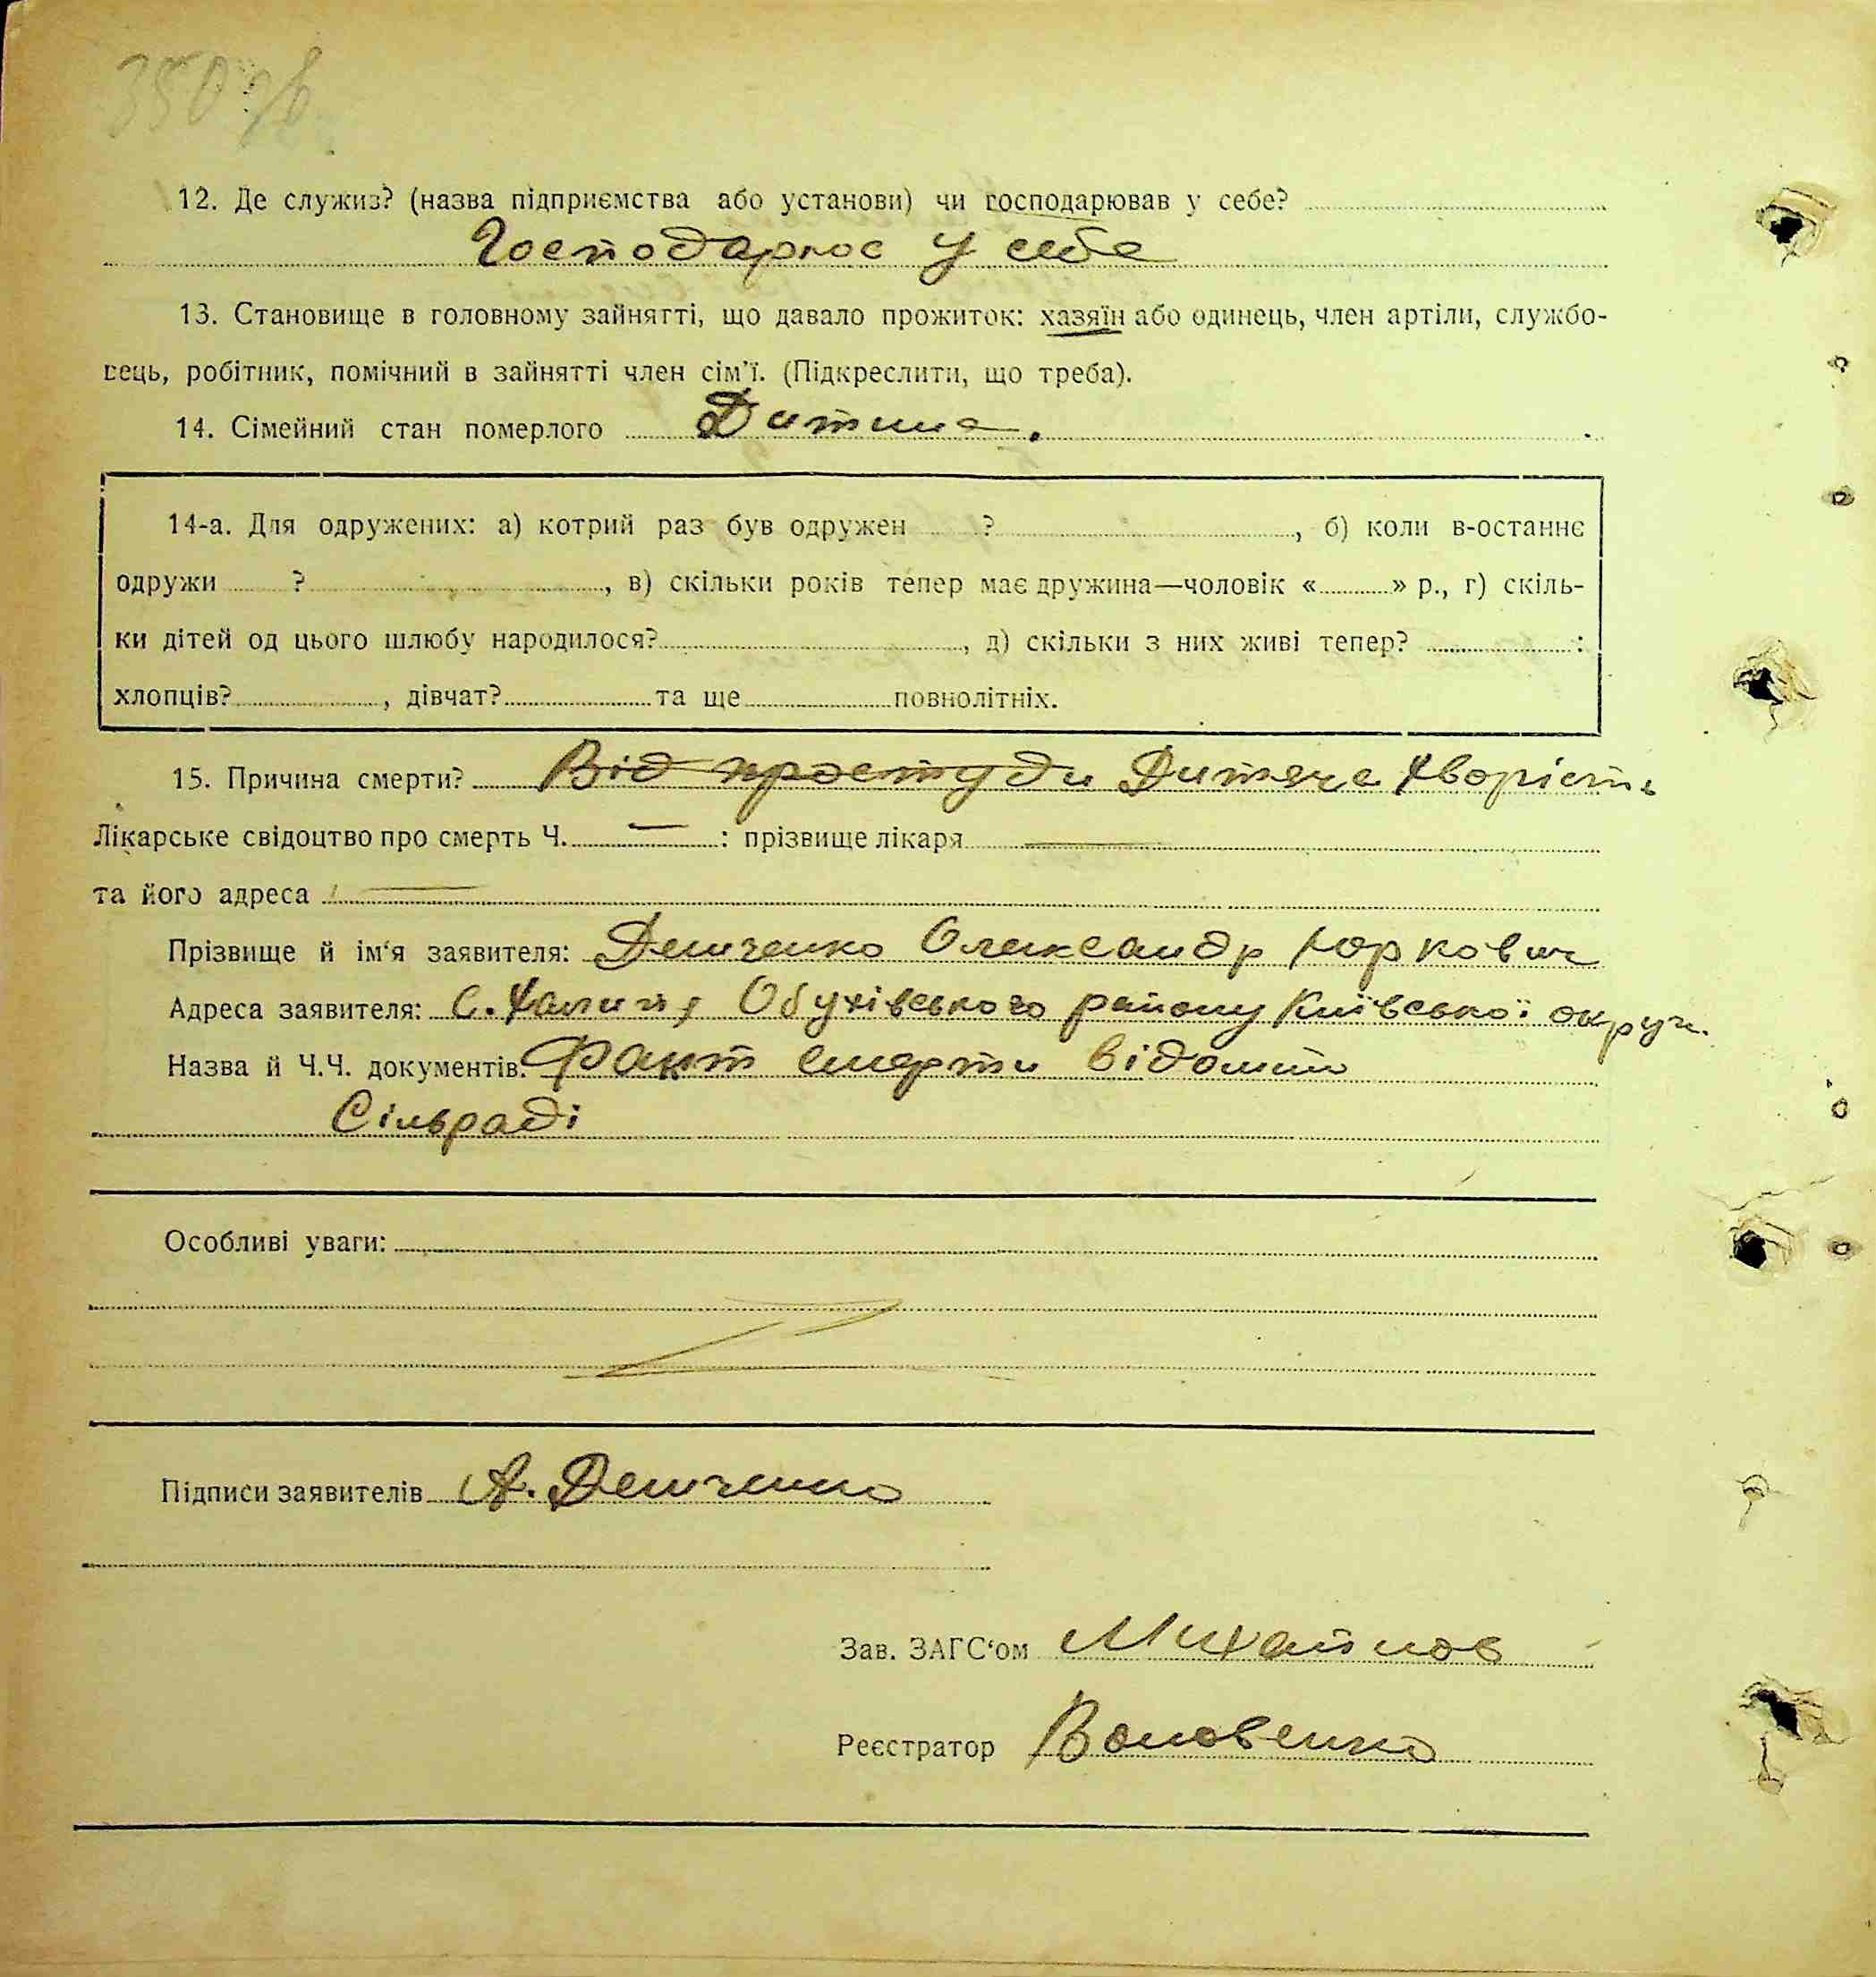 350 зв.
12. Де служив? (назва підприємства або установи) чи господарював у себе?
Господарює у себе
13. Становище в головному зайнятті, що давало прожиток: хазяїн або одинець, член артіли, службо-
вець, робітник, помічний в зайнятті член сім'ї. (Підкреслити, що треба).
14. Сімейний стан померлого Дитина.
14-а. Для одружених: а) котрий раз був одружен ? , б) коли в-останнє
одружи ? , в) скільки років тепер має дружина—чоловік « » р., г) скіль-
ки дітей од цього шлюбу народилося? , д) скільки з них живі тепер? :
хлопців? , дівчат? та ще повнолітніх.
15. Причина смерти? Від простуди Дитяча хворість
Лікарське свідоцтво про смерть Ч. — : прізвище лікаря —
та його адреса —
Прізвище й ім'я заявителя: Демченко Олександр Юркович
Адреса заявителя: с. Халип'я Обухівського району Київської округи.
Назва й Ч.Ч. документів: Факт смерти відомий
Сільраді
Особливі уваги:
Підписи заявителів А. Демченко
Зав. ЗАГС'ом Михайлов
Реєстратор Воловенко